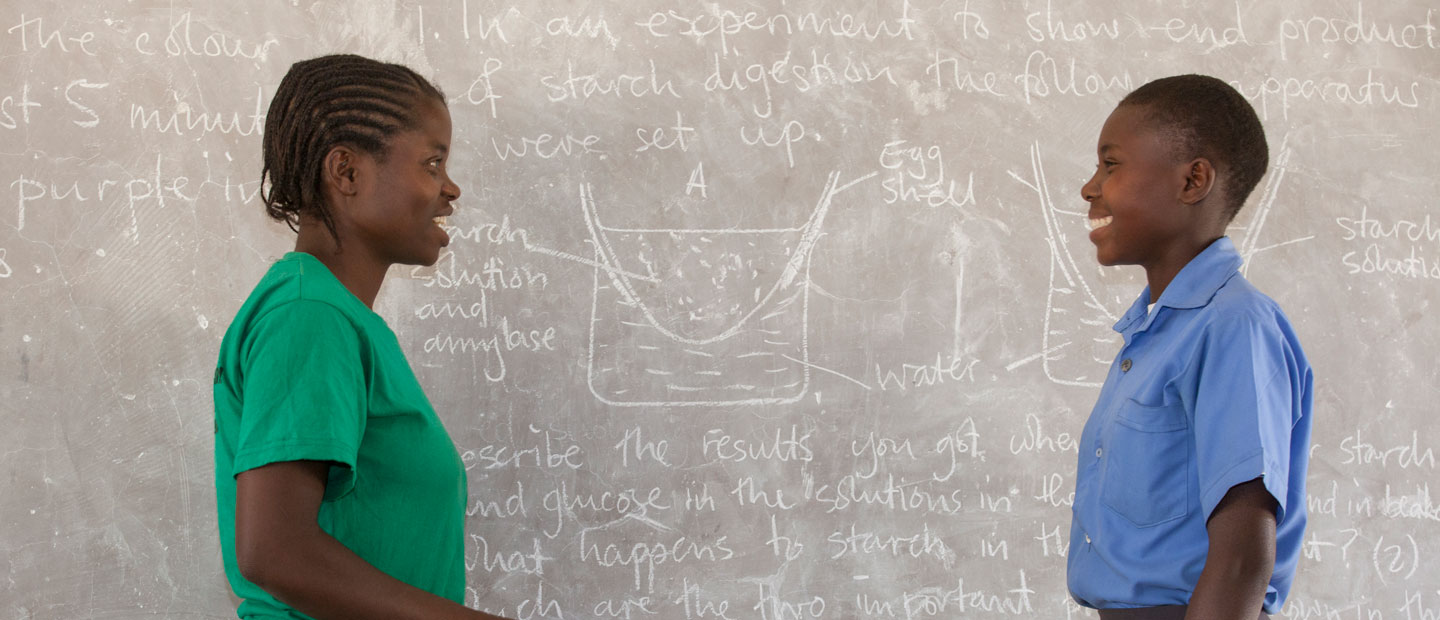 the colour
st 5 minut
purple in
1. In an experiment to show end product
of starch digestion the follow apparatus
were set up.
A
Egg shell
starch solution and amylase
water
starch solution
escribe the results you got when starch
and glucose in the solutions in the and in beake
What happens to starch in th t? (2)
which are the two important own in th